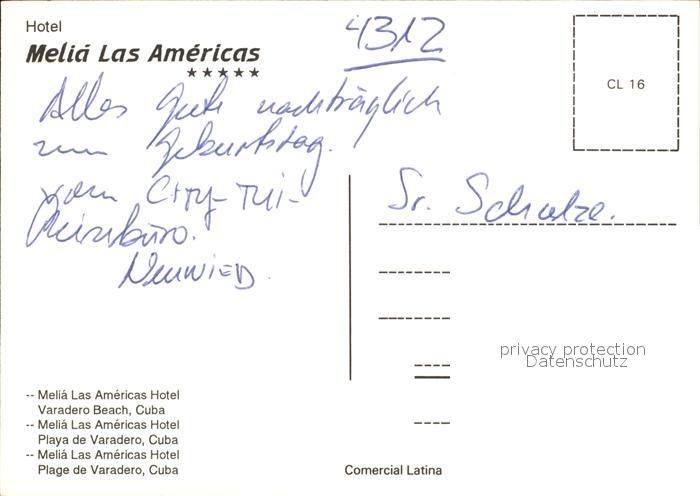 Hotel
Meliá Las Américas
★★★★★
4312
CL 16
Alles Gute nachträglich
zum Geburtstag.
vom City-TUI-
Reisebüro.
Neuwied.
Sr. Schulze.
privacy protection
Datenschutz
-- Meliá Las Américas Hotel
Varadero Beach, Cuba
-- Meliá Las Américas Hotel
Playa de Varadero, Cuba
-- Meliá Las Américas Hotel
Plage de Varadero, Cuba
Comercial Latina